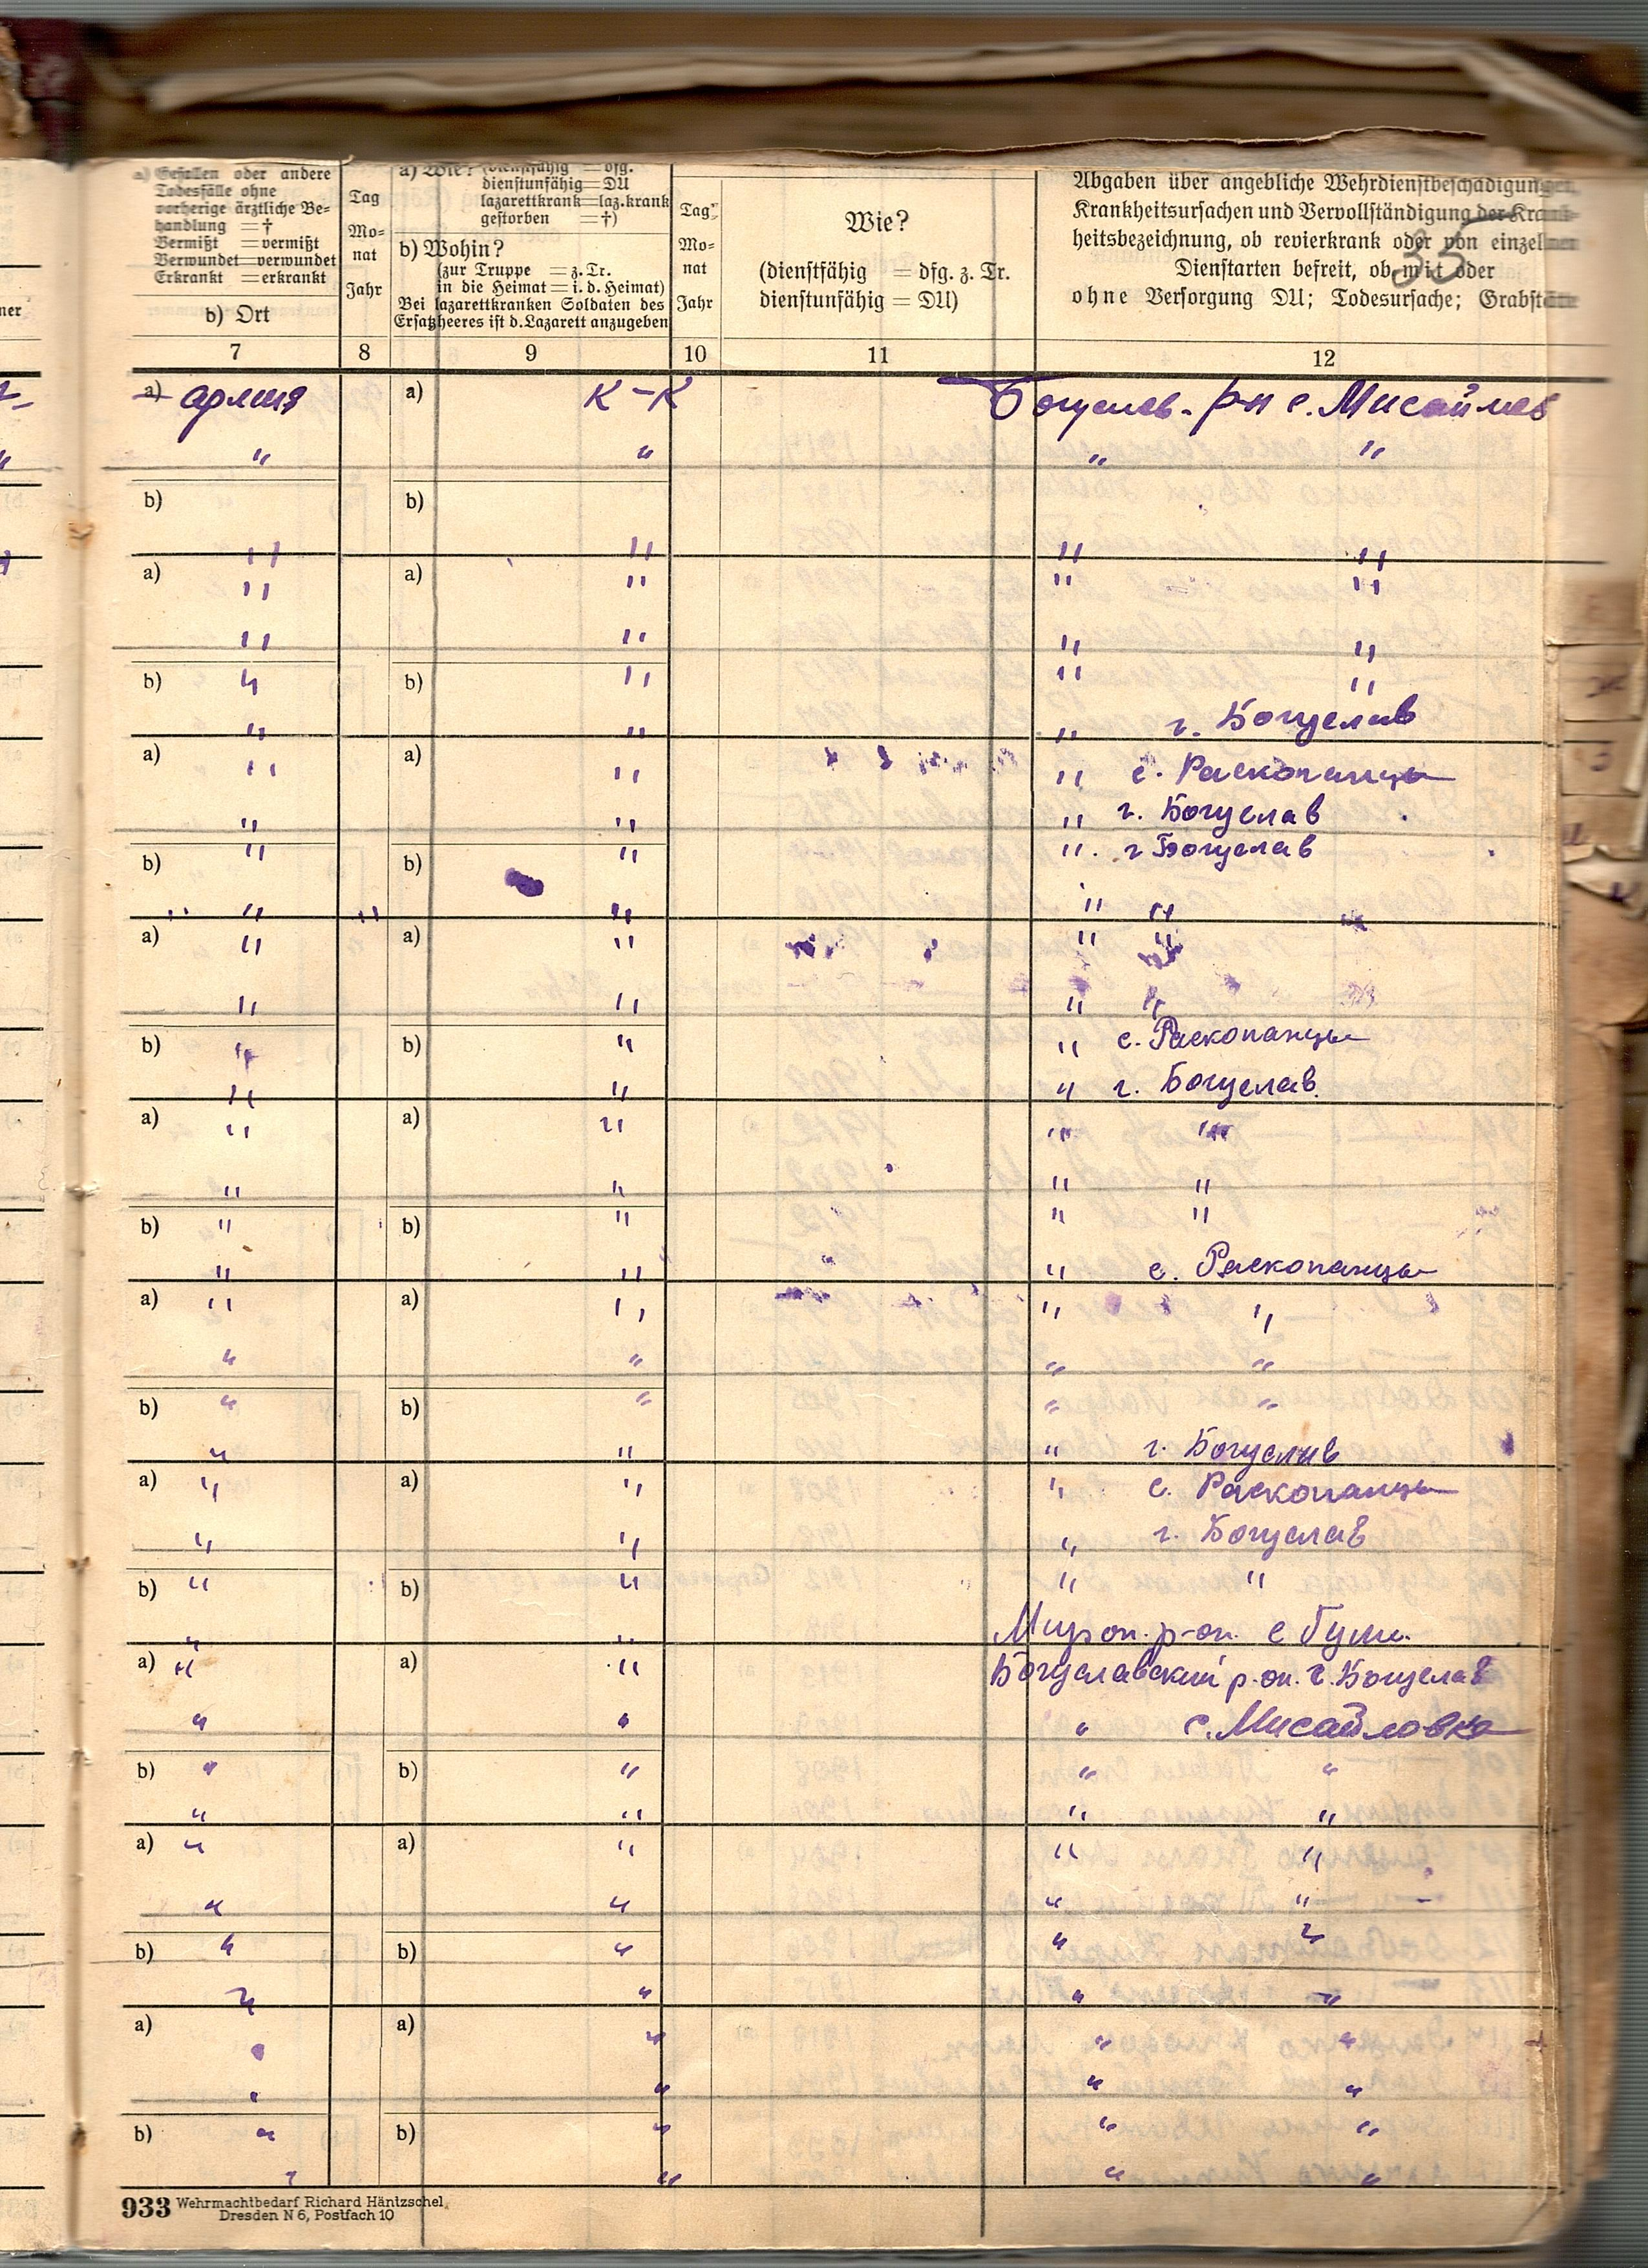 a) Gefallen oder andere
Todesfälle ohne
vorherige ärztliche Be-
handlung = †
Vermißt = vermißt
Verwundet = verwundet
Erkrankt = erkrankt
b) Ort
Tag
Mo-
nat
Jahr
a) Wie? (dienstfähig = dfg.
dienstunfähig = DU
lazarettkrank = laz.krank
gestorben = †)
b) Wohin?
(zur Truppe = z. Tr.
in die Heimat = i. d. Heimat)
Bei lazarettkranken Soldaten des
Ersatzheeres ist d. Lazarett anzugeben
Tag
Mo-
nat
Jahr
Wie?
(dienstfähig = dfg. z. Tr.
dienstunfähig = DU)
Abgaben über angebliche Wehrdienstbeschädigungen,
Krankheitsursachen und Vervollständigung der Krank-
heitsbezeichnung, ob revierkrank oder von einzelnen
Dienstarten befreit, ob mit oder
ohne Versorgung DU; Todesursache; Grabstätte
35
7 8 9 10 11 12
a) армия a) К-К Богуслав. р-н с. Мисайлов
" " " "
b) b)
" " " "
a) " a) " " "
" " " "
b) " b) " " "
" " " г. Богуслав
a) " a) " " с. Раскопанцы
" " " г. Богуслав
b) " b) " " г Богуслав
" " " " " "
a) " a) " " "
" " " "
b) " b) " " с. Раскопанцы
" " " г. Богуслав
a) " a) " " "
" " " "
b) " b) " " "
" " " с. Раскопанцы
a) " a) " " "
" " " "
b) " b) " " "
" " " г. Богуслав
a) " a) " " с. Раскопанцы
" " " г. Богуслав
b) " b) " " "
" " Мирон. р-он. с
a) " a) " Богуславский р-он. г. Богуслав
" " " с. Мисайловка
b) " b) " " "
" " " "
a) " a) " " "
" " " "
b) " b) " " "
" " " "
a) " a) " " "
" " " "
b) " b) " " "
" " " "
933 Wehrmachtbedarf Richard Häntzschel,
Dresden N 6, Postfach 10